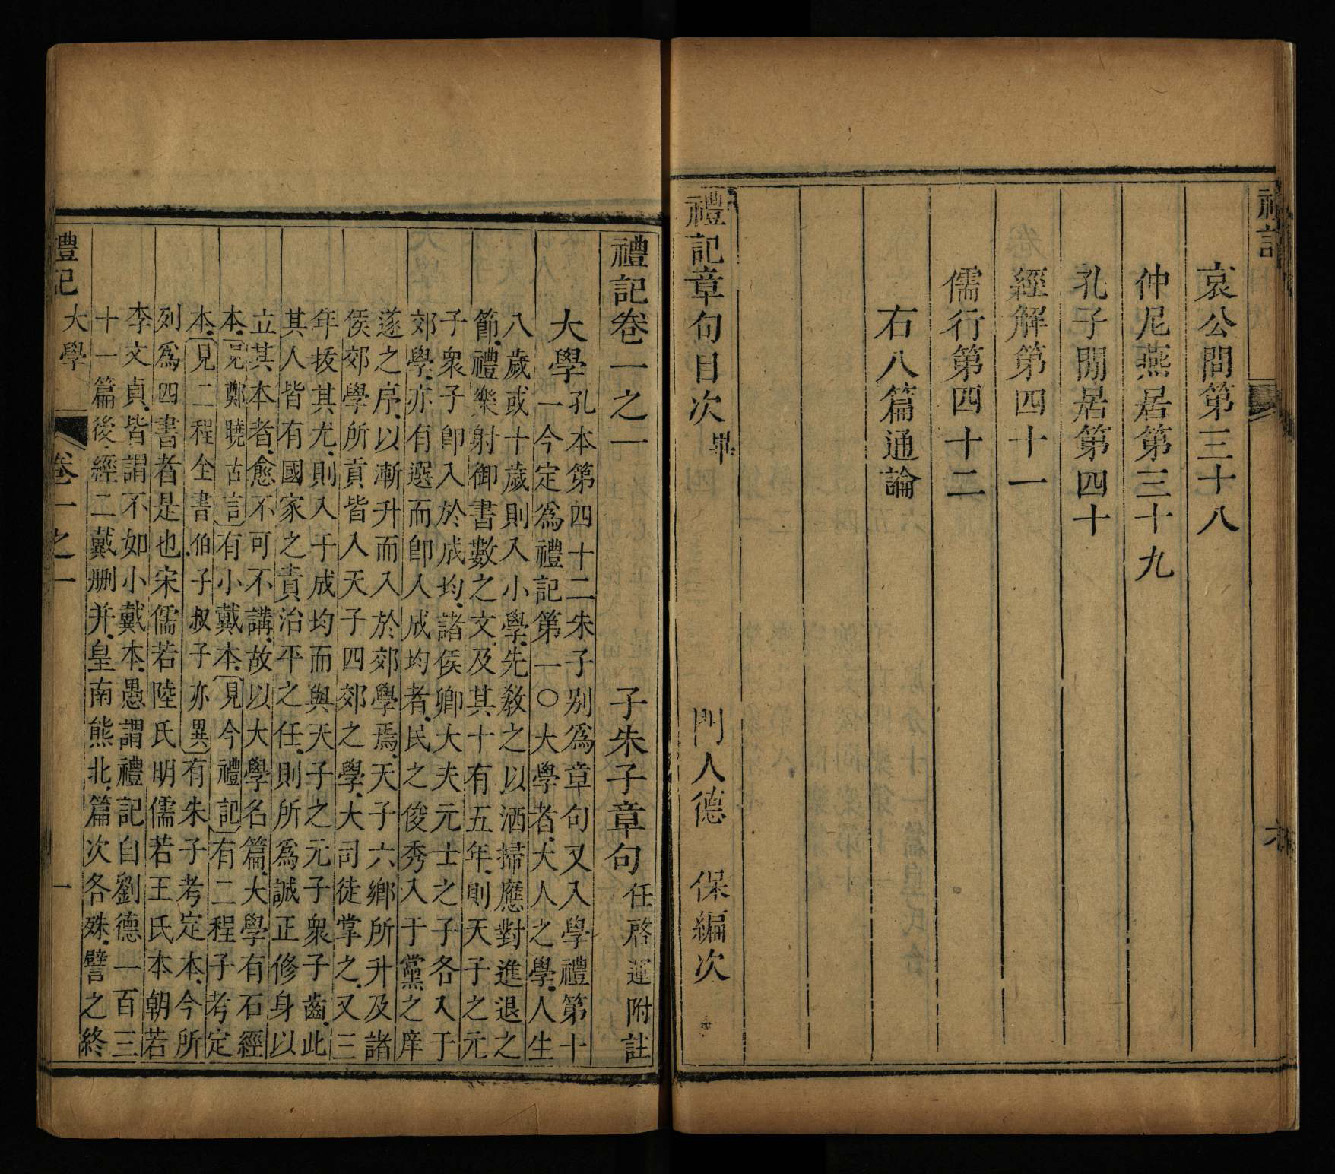 禮記 六
哀公問第三十八
仲尼燕居第三十九
孔子閒居第四十
經解第四十一
儒行第四十二
右八篇通論
禮記章句目次畢 門人德 保編次
禮記卷一之一 子朱子章句 任啓運附註
大學 孔本第四十二朱子別爲章句又入學禮第十
一今定爲禮記第一○大學者大人之學人生
八歲或十歲則入小學先敎之以洒掃應對進退之
節禮樂射御書數之文及其十有五年則天子之元
子衆子卽入於成均諸侯卿大夫元士之子各入于
郊學亦有選而卽入成均者民之俊秀入于黨之庠
遂之序以漸升而入於郊學焉天子六鄉所升及諸
侯郊學所貢皆入天子四郊之學大司徒掌之又三
年拔其尤則入于成均而與天子之元子衆子齒此
其人皆有國家之責治平之任則所爲誠正修身以
立其本者愈不可不講故以大學名篇大學有石經
本見鄭曉古言有小戴本見今禮記有二程子考定
本見二程全書伯子叔子亦異有朱子考定本今所
列爲四書者是也宋儒若陸氏明儒若王氏本朝若
李文貞皆謂不如小戴本愚謂禮記自劉德一百三
十一篇後經二戴刪并皇南熊北篇次各殊譬之終
禮記 大學 卷一之一 一